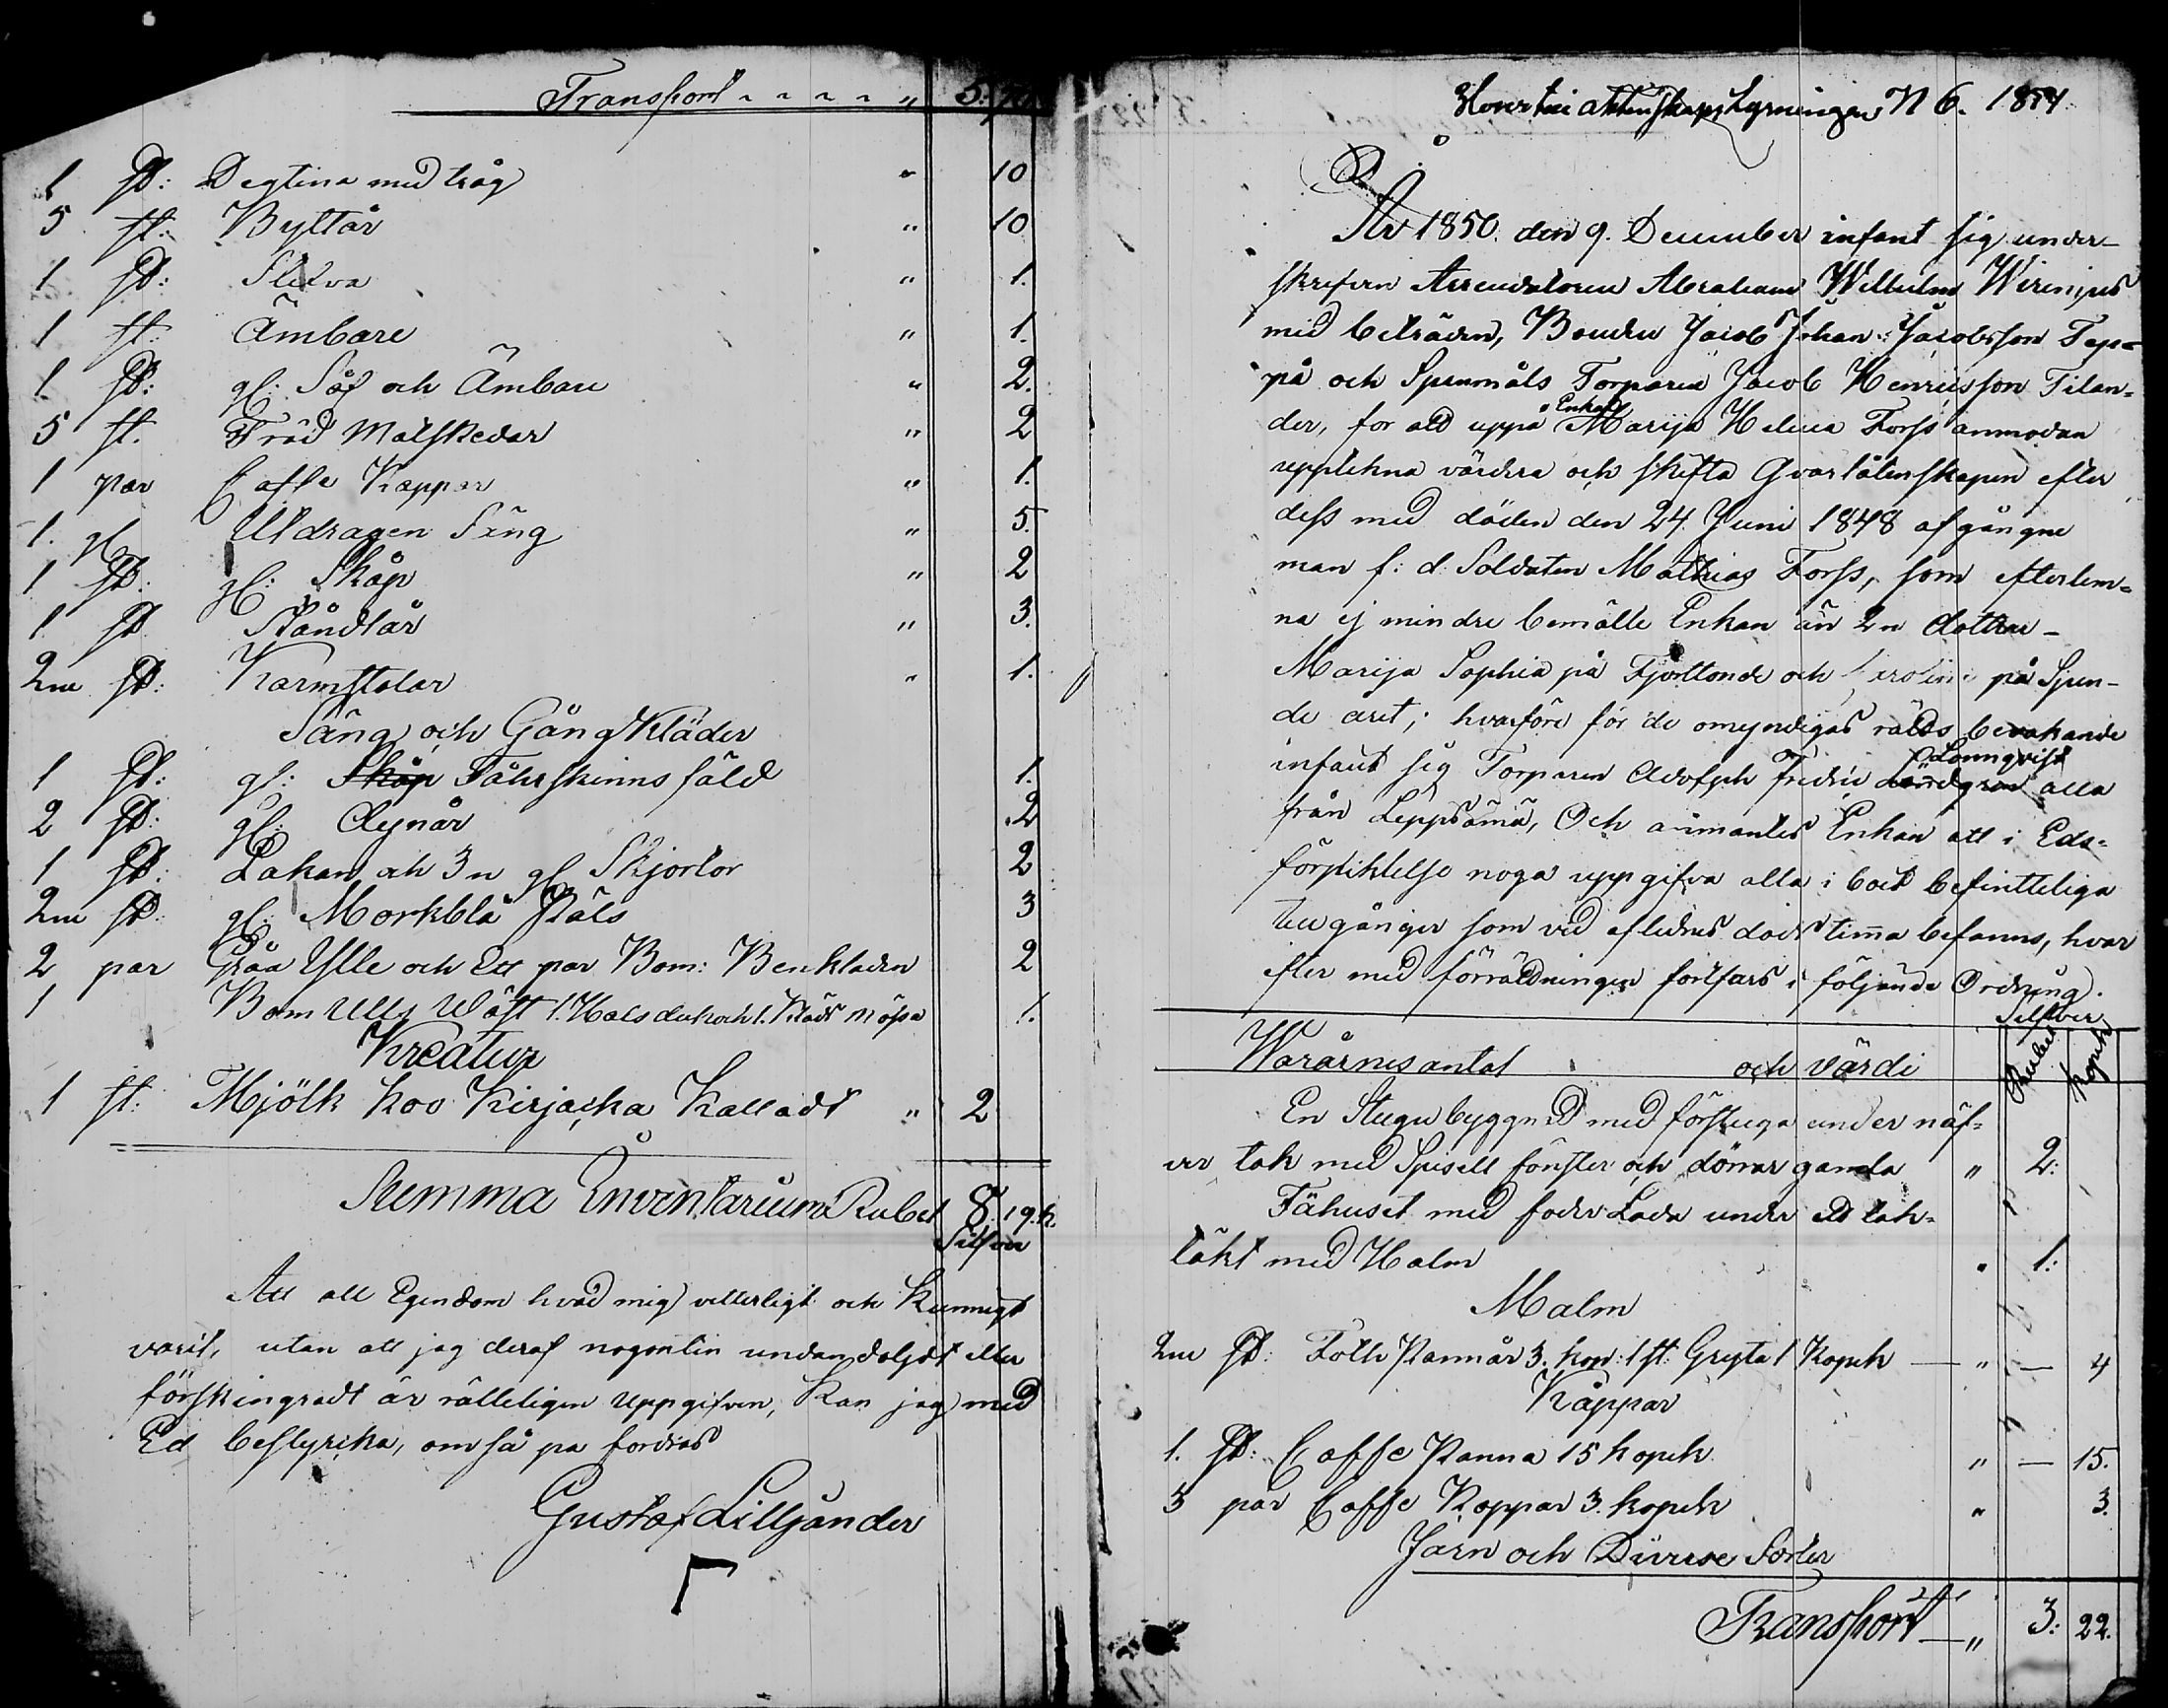 Transport „ 5:
1 st: Degtina med tråg „ 10
5 st: Byttår „ 10
1 st: Slefva „ 1.
1 st: Ämbare „ 1.
1 st: gl: Såf och Ämbare „ 2.
5 st. Träd Matskedar „ 2
1 par Caffe Koppar „ 1.
1. gl Utdragen Säng „ 5.
1 st: gl: Skåp „ 2
1 st Ståndkår „ 3.
2ne st: Karmstolar „ 1.
Säng och Gång Kläder
1 st: gl: Skåp Fåhrskinns fäld 1.
2 st: gl: Dynår 2
1 st: Lakan och 3n gl Skjortor 2
2ne st: gl: Morkblå Päls 3
2 par Gråa Ylle och Ett par Bom: Benkläden 2
1 Bom Ulls Wäst 1. Halsduk och 1. Kläds Mössa 1.
Kreatur
1 st: Mjölk Koo Kirjacka Kalladt „ 2
Summa Inventarium Rubel 8. 19. k.
Silfver
Att all Egendom hvad mig vitterligt och Kunnigt
varit, utan att jag deraf nogonlin undan doljdt eller
förskingradt är rätteligen uppgifven, Kan jag med
Ed bestyrika, om så pa fordras
Gustaf Lilljander
N 6. 1851
År 1850. den 9. December infant sig under-
skrifven Arrendatoren Abraham Wilhelm Wirenius
mid beträden, Bonden Jacob Johan Jacobsson Tep-
på och Spenmåls Torparen Jacob Henriksson Tilan-
der, for att uppå Enkan Marija Helena Forss anmodan
upptekna värdera och skifta Qvarlåtenskapen efter
dess med döden den 24 Juni 1848 afgångne
man f: d: Soldaten Mathias Forss, som efterlem-
na ej mindre bemälte Enkan än 2n dottrar -
Marija Sophia på Fjortonde och på Sjun-
de året; hvarföre för de omyndigas rätts bevakande
infant sig Torparen Adolph Fredric Lindgren Lonnqvist alla
från Leppsämä, Och anmantes Enkan att i Eds-
förpiktelse noga uppgifva alla i boet befintteliga
tillgånger som vid aflednes döds timma befanns, hvar
efter med förrättningen fortfars i följande Ordning.
Silfver
Warårnes antal och värdi Rubel kopek
En Stugu byggnad med förstuga under näf-
ver tak med Spisell fönster och dörrar gamla „ 2:
Fähuset med foder Lada under ett tak-
täkt med Halm „ 1:
Malm
2ne st: Foth Pannår 3. kop: 1 st: Gryta 1 Kopek — „ — 4
Kåppar
1. st: Caffe Panna 15 kopek „ — 15.
3 par Caffe Koppar 3. kopek „ 3.
Järn och Diverse Sorter
Transport — „ 3: 22.